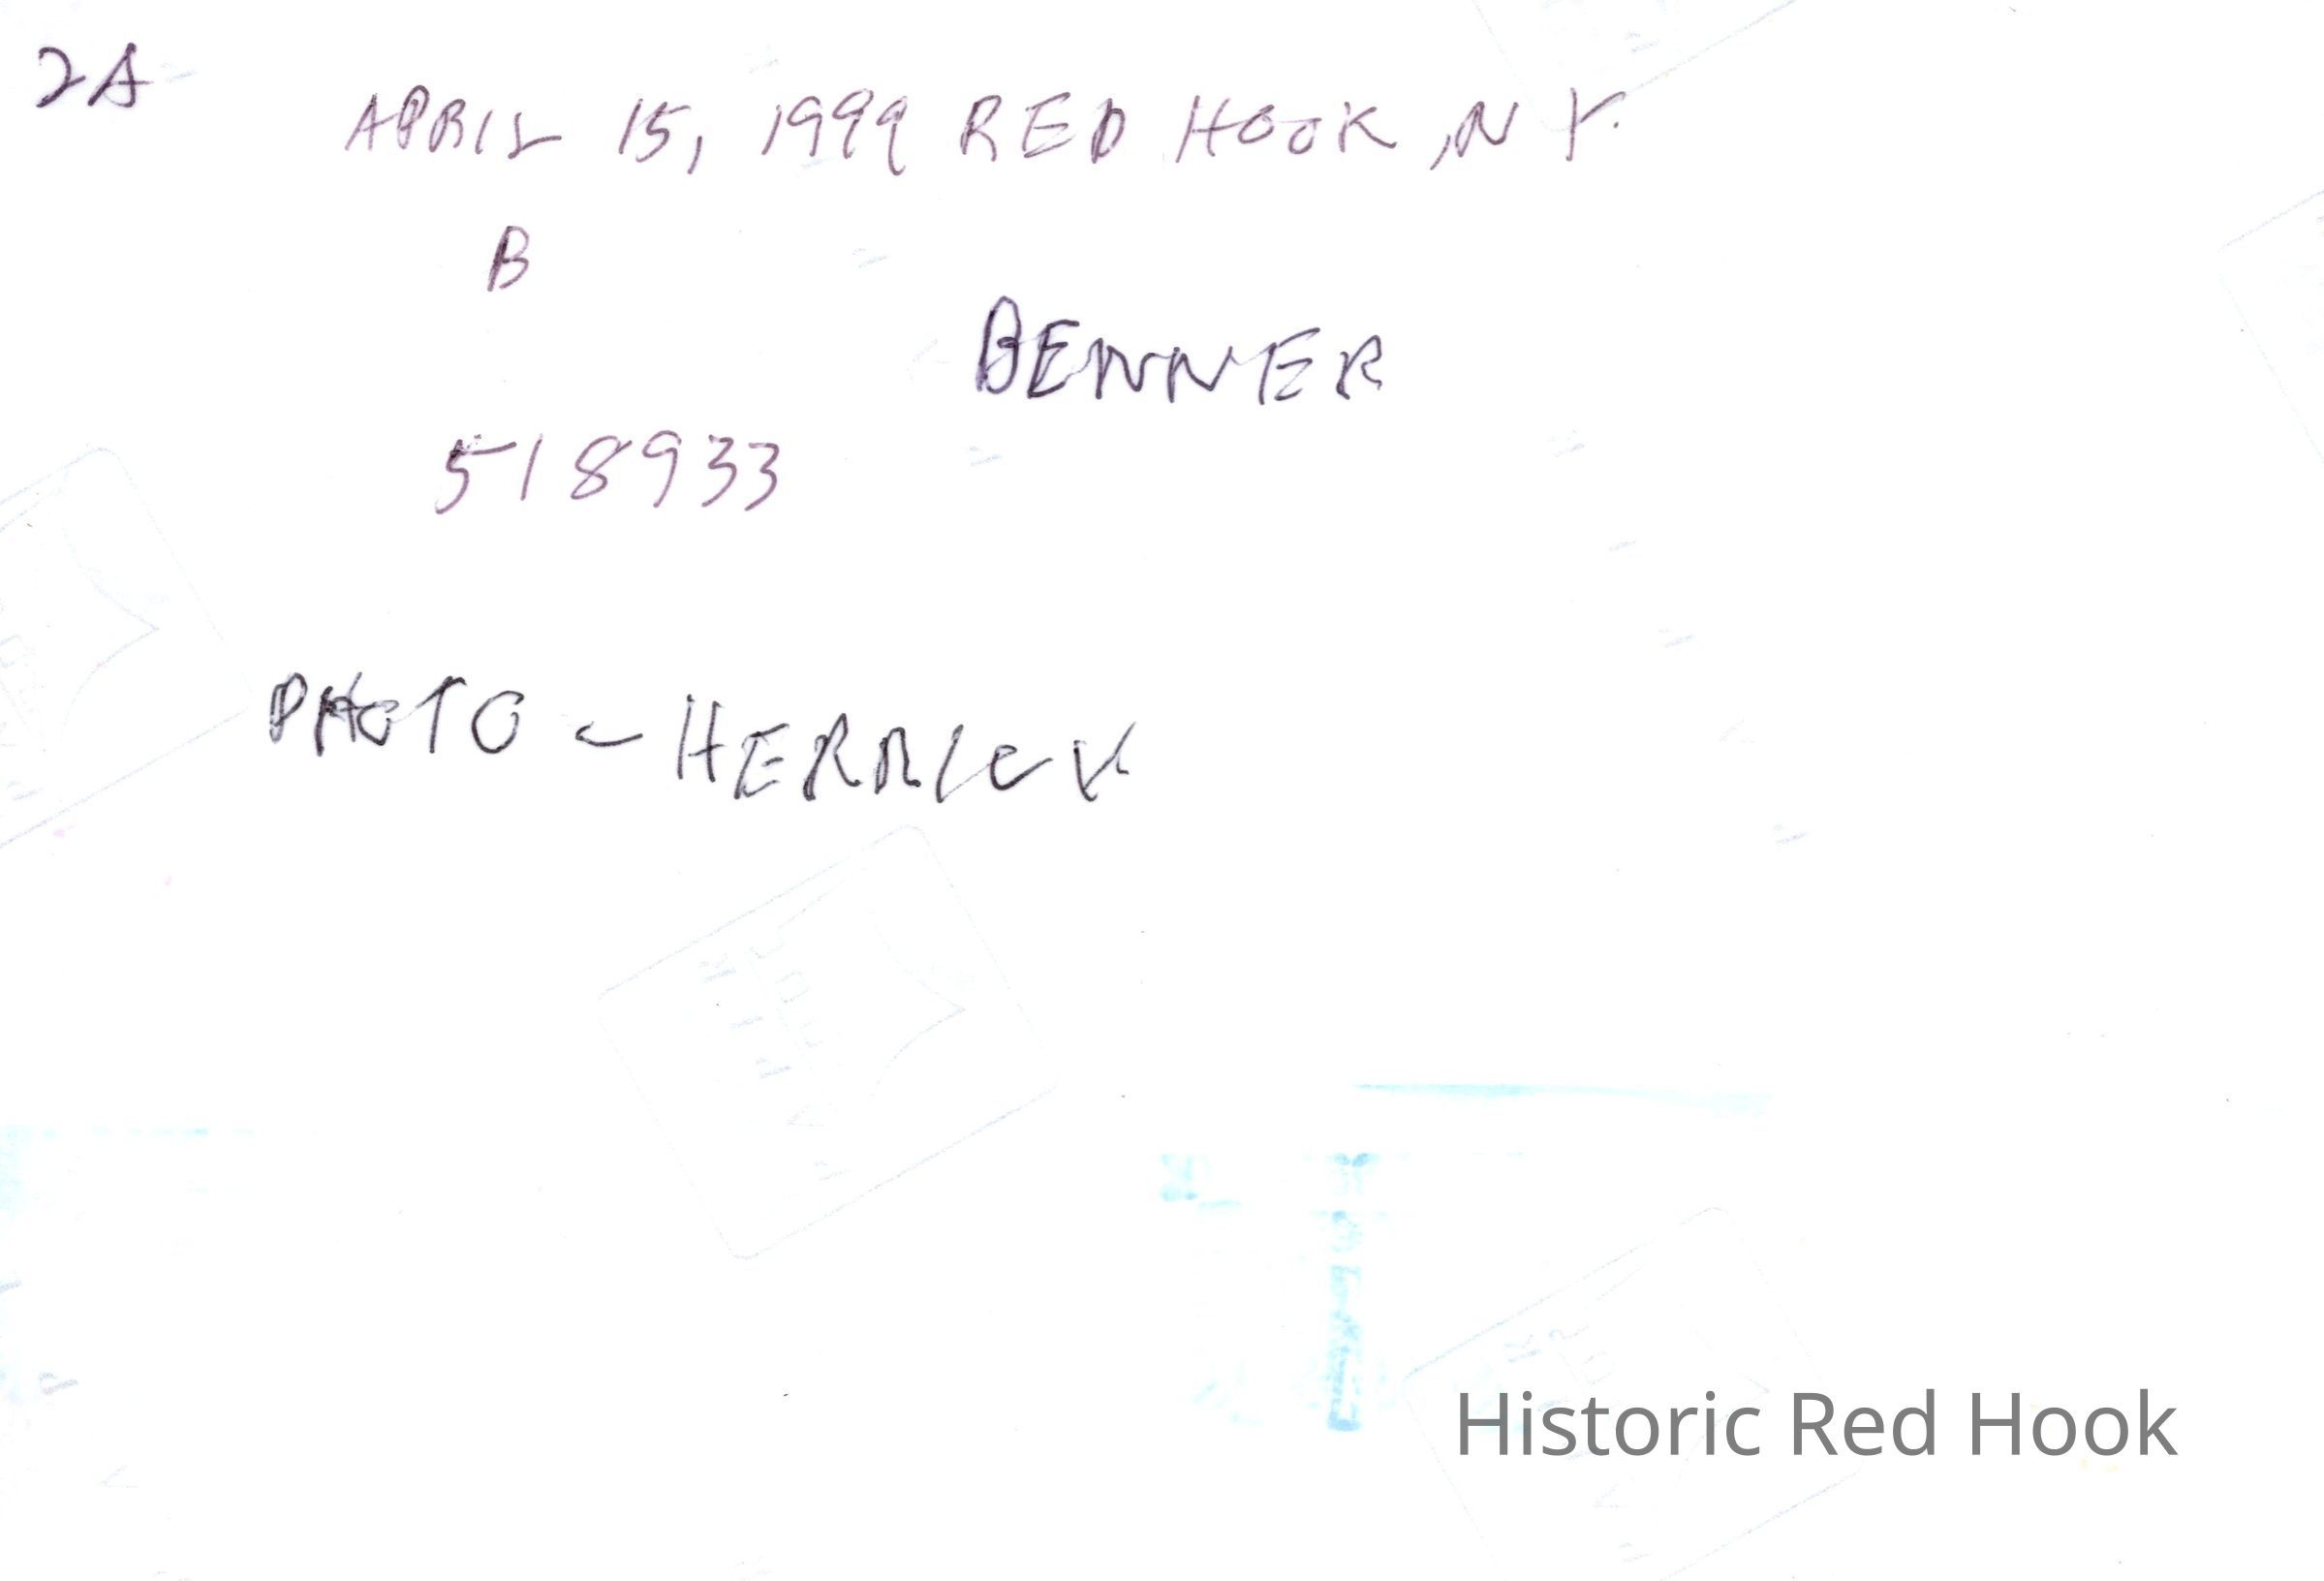 2A
APRIL 15, 1999 RED HOOK, N Y.
B
BENNER
518933
PHOTO - HERRICK
Historic Red Hook